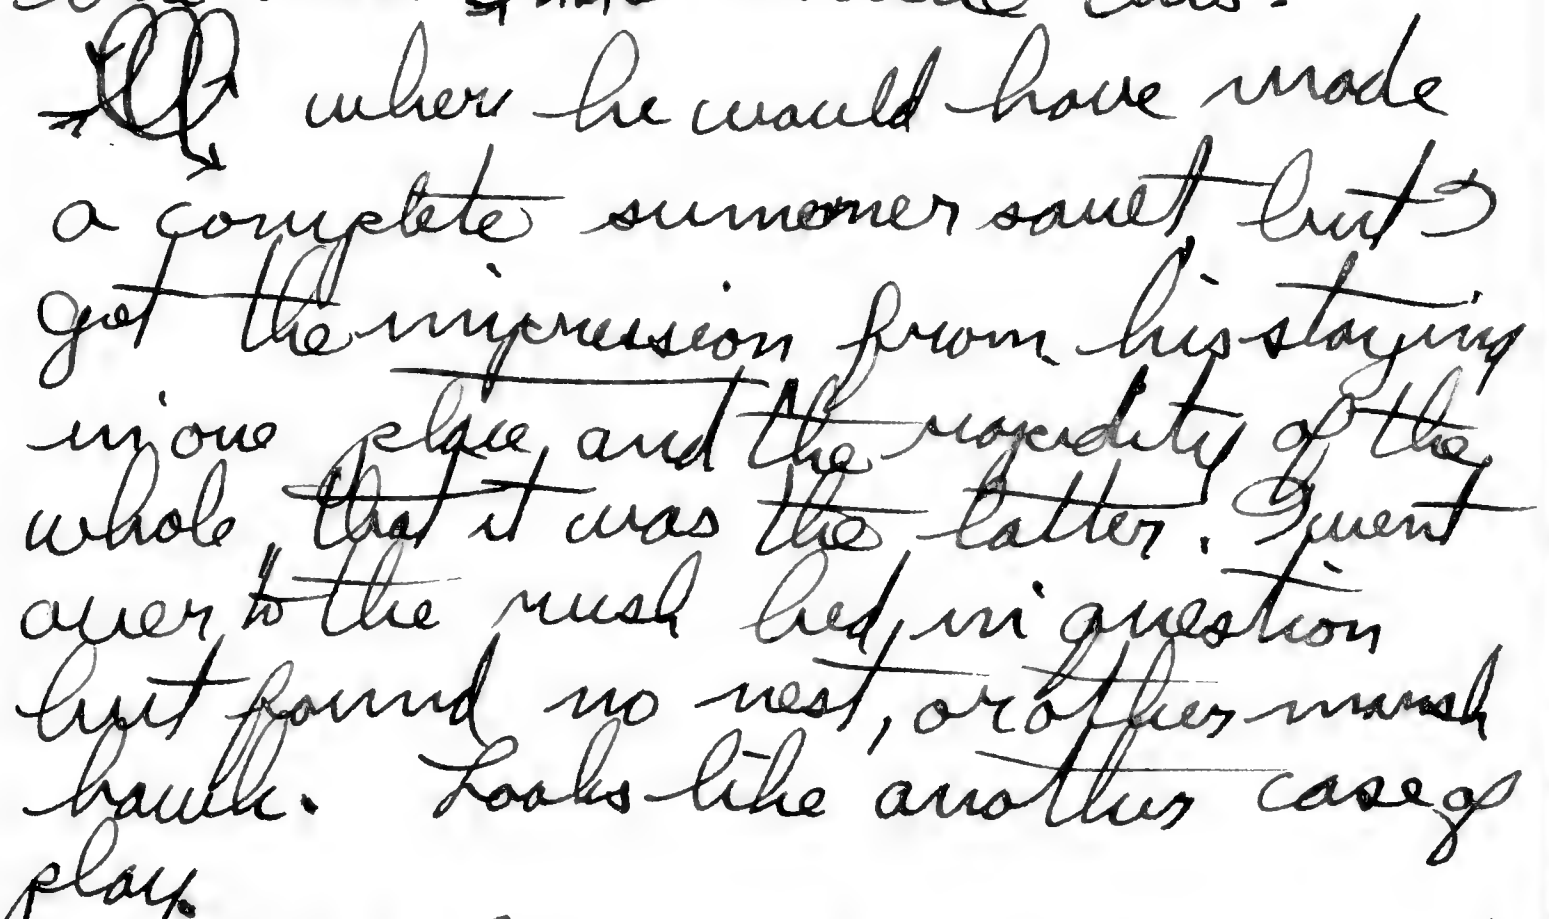 when he would have made
a complete summer sault but I
got the impression from his staying
in one place and the rapidity of the
whole, that it was the latter. I went
over to the rush bed, in question
but found no nest, or other marsh
hawk. Looks like another case of
play.